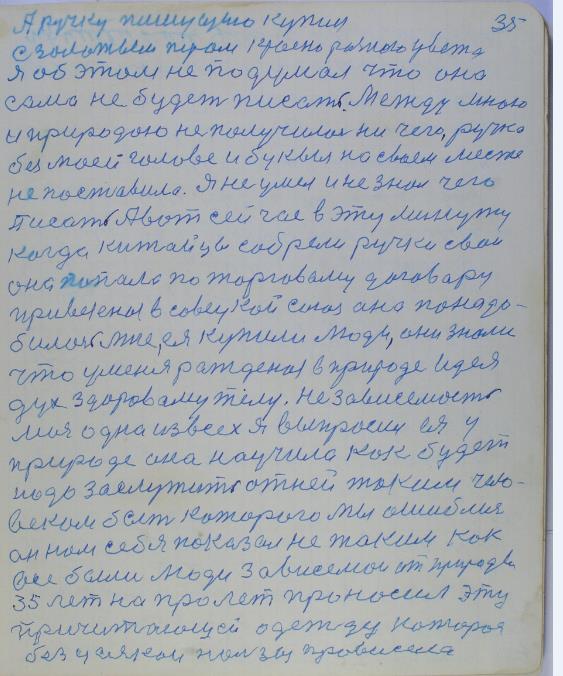 А ручку пишущую купил 35
с золотым пером красно разного цвета
я об этом не подумал что она
сама не будет писать. Между мною
и природою не получилось ни чего, ручка
без моей голове и буквы на своем месте
не поставила. Я не умел и не знал чего
писать А вот сейчас в эту минуту
когда китайцы собрали ручки свои
она попала по торговаму договару
привезена в совецкой союз она понадо-
билась мне, ея купили люди, они знали
что у меня раждена в природе идея
дух здоровому телу. Независемость
моя одна из всех я выпросил ея у
природе она научила как будет
надо заслужить от ней таким чело-
веком быть которого мы ошиблись
он нам себя показал не таким как
все были люди зависемои от природы
35 лет на пролет проносил эту
причитающей одежду которая
без всякой пользы провисела